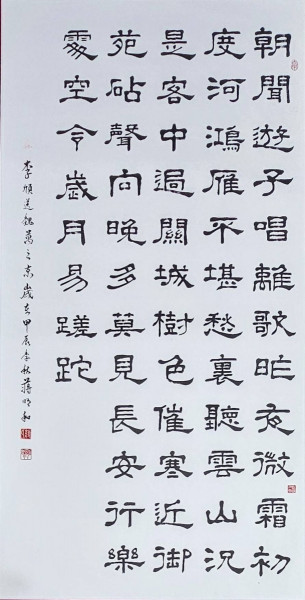 朝聞遊子唱離歌昨夜微霜初
度河鴻雁不堪愁裏聽雲山況
是客中過關城樹色催寒近御
苑砧聲向晚多莫見長安行樂
處空令歲月易蹉跎
李頎送魏萬之京歲在甲辰季秋蔣明和